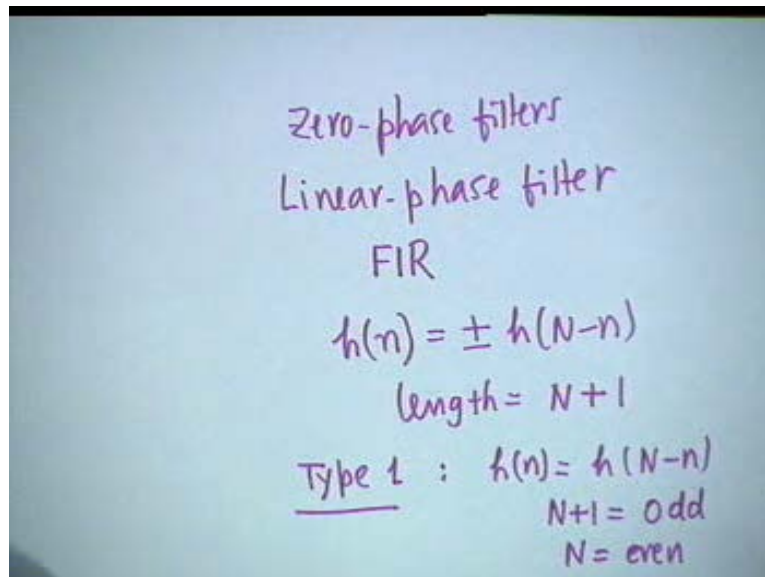 Zero-phase filters
Linear-phase filter
FIR
h(n) = ± h(N-n)
length = N+1
Type 1 : h(n) = h(N-n)
N+1 = odd
N = even